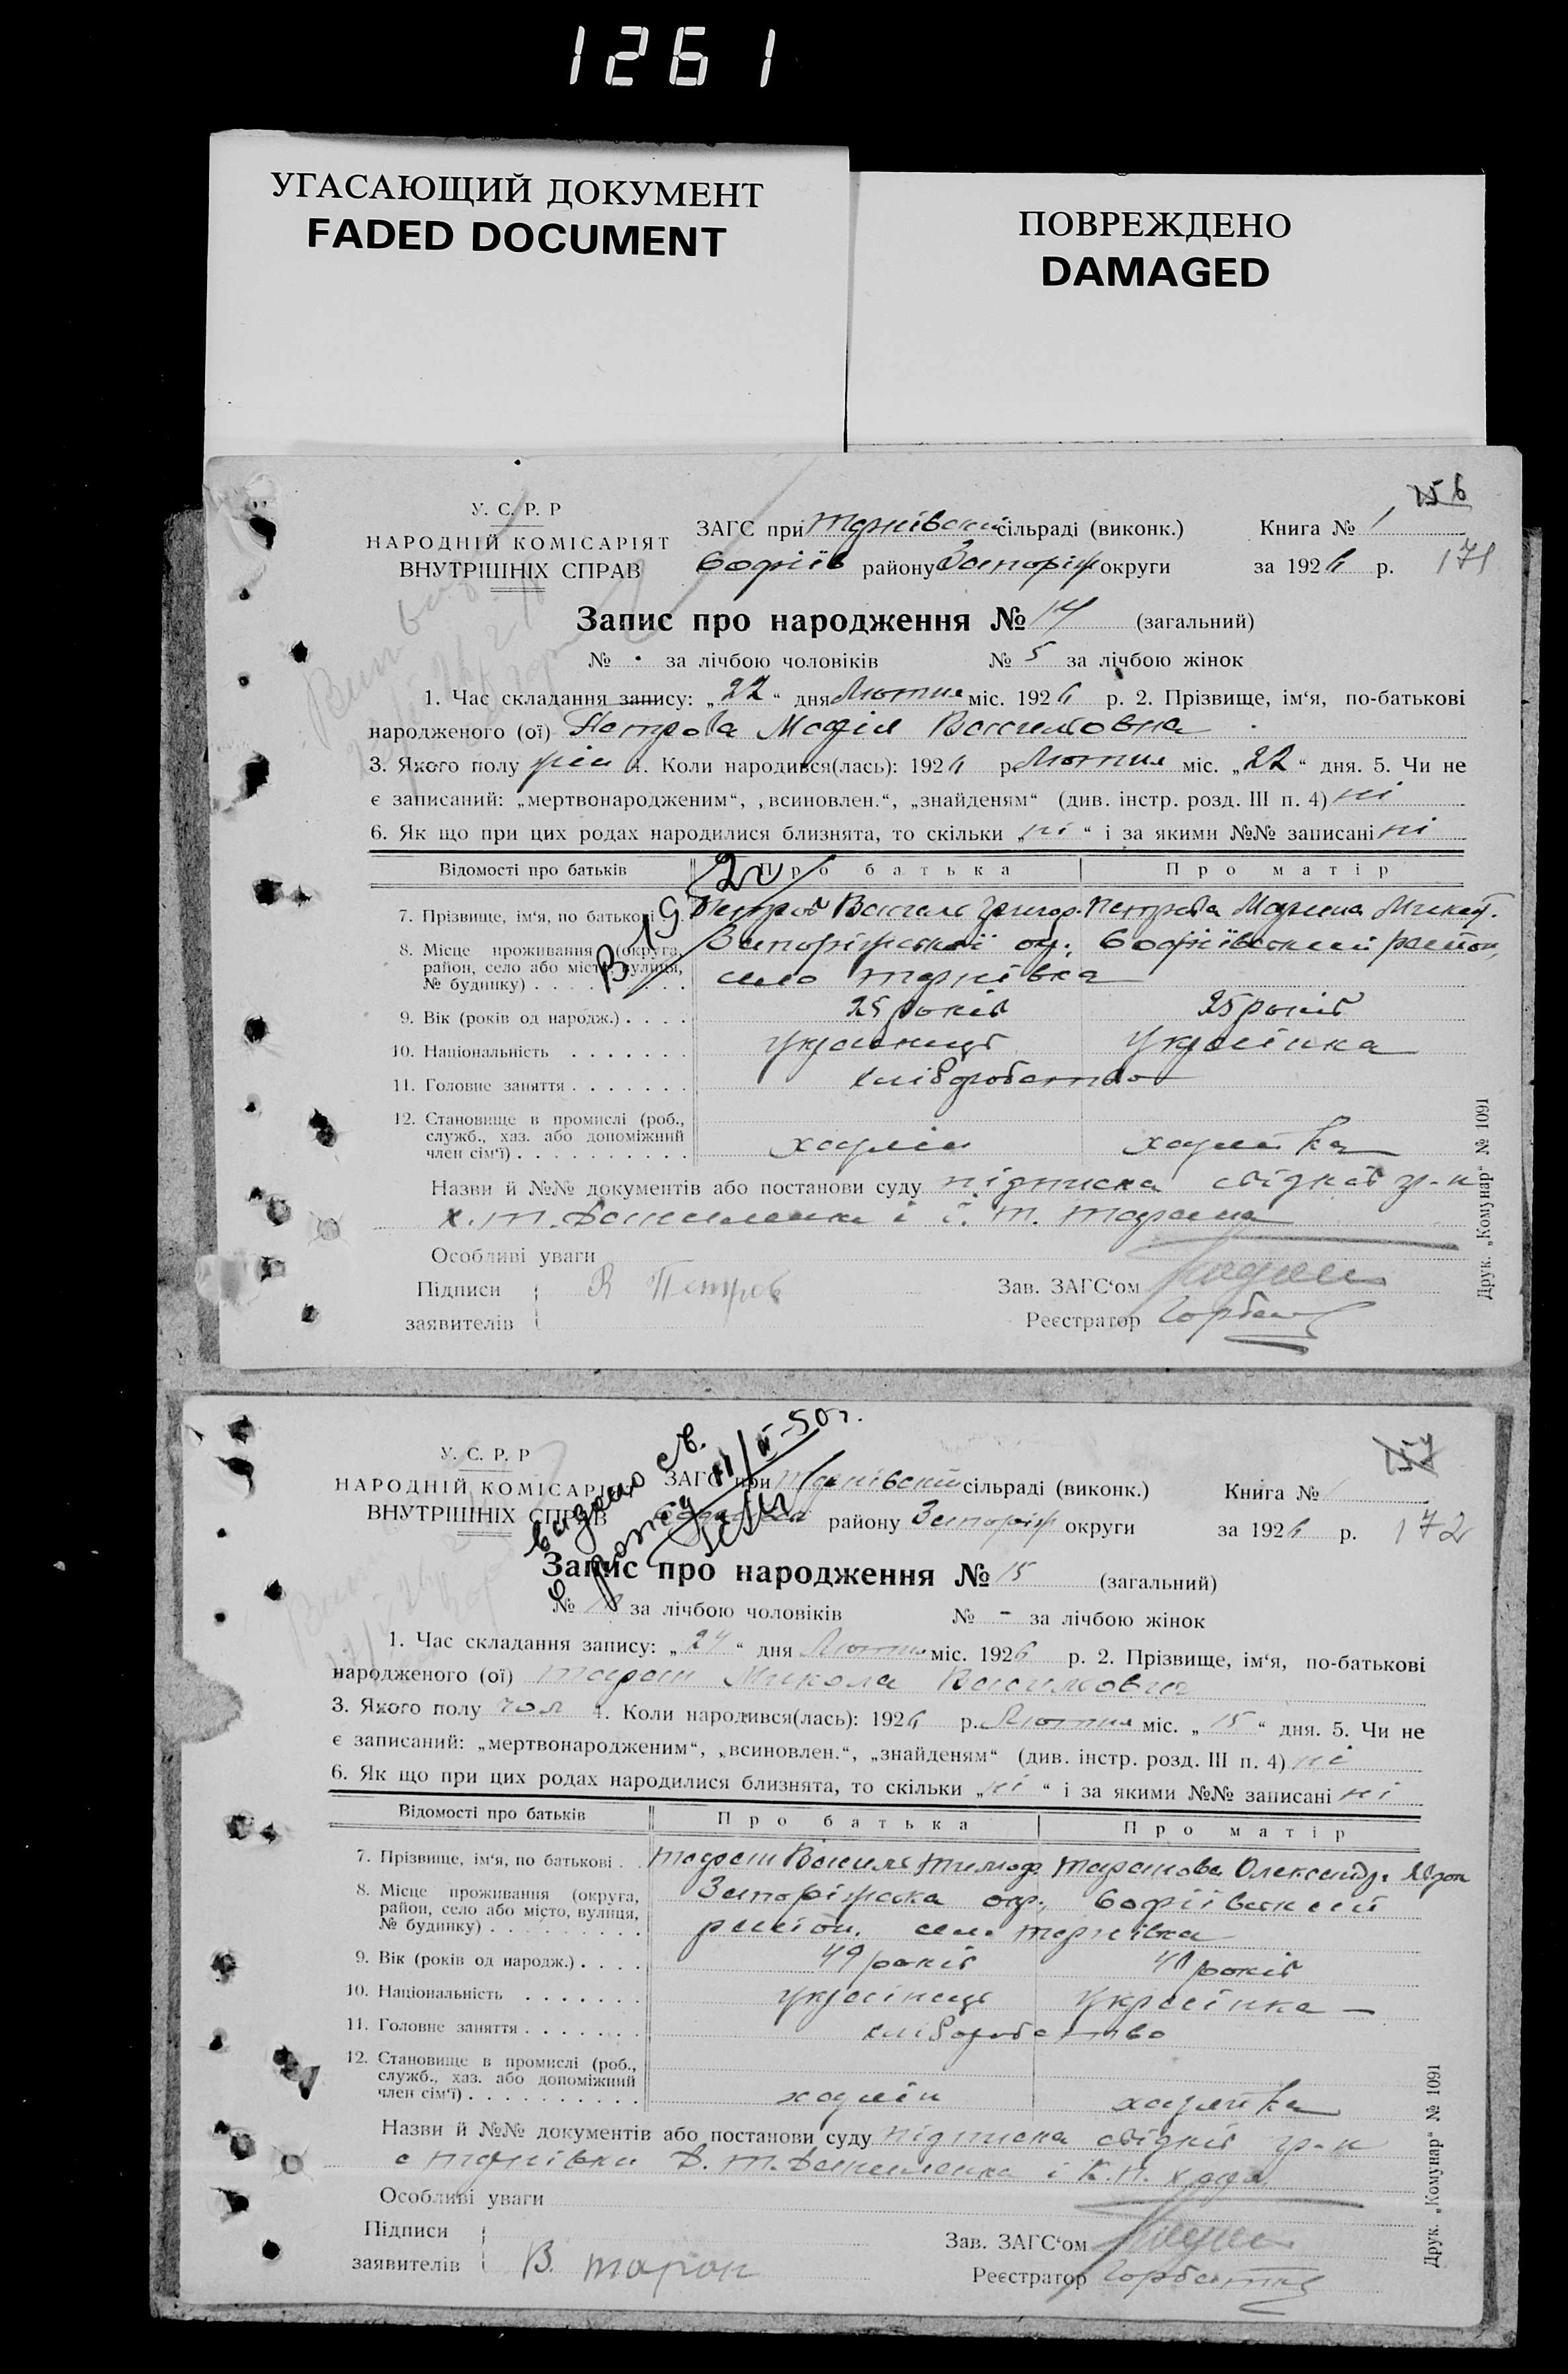 1261
УГАСАЮЩИЙ ДОКУМЕНТ
FADED DOCUMENT
ПОВРЕЖДЕНО
DAMAGED
156
У. С. Р. Р
НАРОДНІЙ КОМІСАРІЯТ
ВНУТРІШНІХ СПРАВ
ЗАГС при Тернівській сільраді (виконк.)
Софіїв району Запоріж округи
Книга № 1
за 1926 р. 171
Запис про народження № 14 (загальний)
№ за лічбою чоловіків № 5 за лічбою жінок
1. Час складання запису: „22“ дня Лютня міс. 1926 р. 2. Прізвище, ім‘я, по-батькові
народженого (ої) Петрова Василовна
3. Якого полу жін 4. Коли народився(лась): 1926 р. Лютня міс. „22“ дня. 5. Чи не
є записаний: „мертвонародженим“, „всиновлен.“, „знайденям“ (див. інстр. розд. III п. 4) ні
6. Як що при цих родах народилися близнята, то скільки „ні“ і за якими №№ записані ні
Відомості про батьків Про батька Про матір
7. Прізвище, ім‘я, по батькові . . Петров Василь Григор. Петрова Марина Микит.
8. Місце проживання (округа, район, село або місто, вулиця, № будинку) . . . . . . . . . Запоріжської ок., Софіївський район,
село Тернівка
9. Вік (років од народж.) . . . . 25 років 25 років
10. Національність . . . . . . . українець українка
11. Головне заняття . . . . . . . хліборобство
12. Становище в промислі (роб., служб., хаз. або допоміжний член сім‘ї) . . . . . . . . . . хазяїн хазяйка
Назви й №№ документів або постанови суду підписка свідків гр-н
Х. Т. Даниленка і Т. Тарана
Особливі уваги
Підписи заявителів В Петров
Зав. ЗАГС‘ом
Реєстратор
Друк. „Комунар“ № 1091
видано св.
о рожд 11/II-50г.
У. С. Р. Р
НАРОДНІЙ КОМІСАРІЯТ
ВНУТРІШНІХ СПРАВ
ЗАГС при Тернівській сільраді (виконк.)
району Запоріж округи
Книга №
за 1926 р. 172
Запис про народження № 15 (загальний)
№ за лічбою чоловіків № - за лічбою жінок
1. Час складання запису: „24“ дня Лютня міс. 1926 р. 2. Прізвище, ім‘я, по-батькові
народженого (ої) Таран Микола Василович
3. Якого полу чол 4. Коли народився(лась): 1926 р. Лютня міс. „15“ дня. 5. Чи не
є записаний: „мертвонародженим“, „всиновлен.“, „знайденям“ (див. інстр. розд. III п. 4) ні
6. Як що при цих родах народилися близнята, то скільки „ні“ і за якими №№ записані ні
Відомості про батьків Про батька Про матір
7. Прізвище, ім‘я, по батькові . . Таран Василь Тимоф. Таранова Олександр.
8. Місце проживання (округа, район, село або місто, вулиця, № будинку) . . . . . . . . . Запоріжська окр., Софіївський
район. село Тернівка
9. Вік (років од народж.) . . . . 49 років років
10. Національність . . . . . . . українець українка —
11. Головне заняття . . . . . . . хліборобство
12. Становище в промислі (роб., служб., хаз. або допоміжний член сім‘ї) . . . . . . . . . . хазяїн хазяйка
Назви й №№ документів або постанови суду підписка свідків гр-н
с Тернівки Д. Т. Даниленка і К. П.
Особливі уваги
Підписи заявителів В. Таран
Зав. ЗАГС‘ом
Реєстратор
Друк. „Комунар“ № 1091